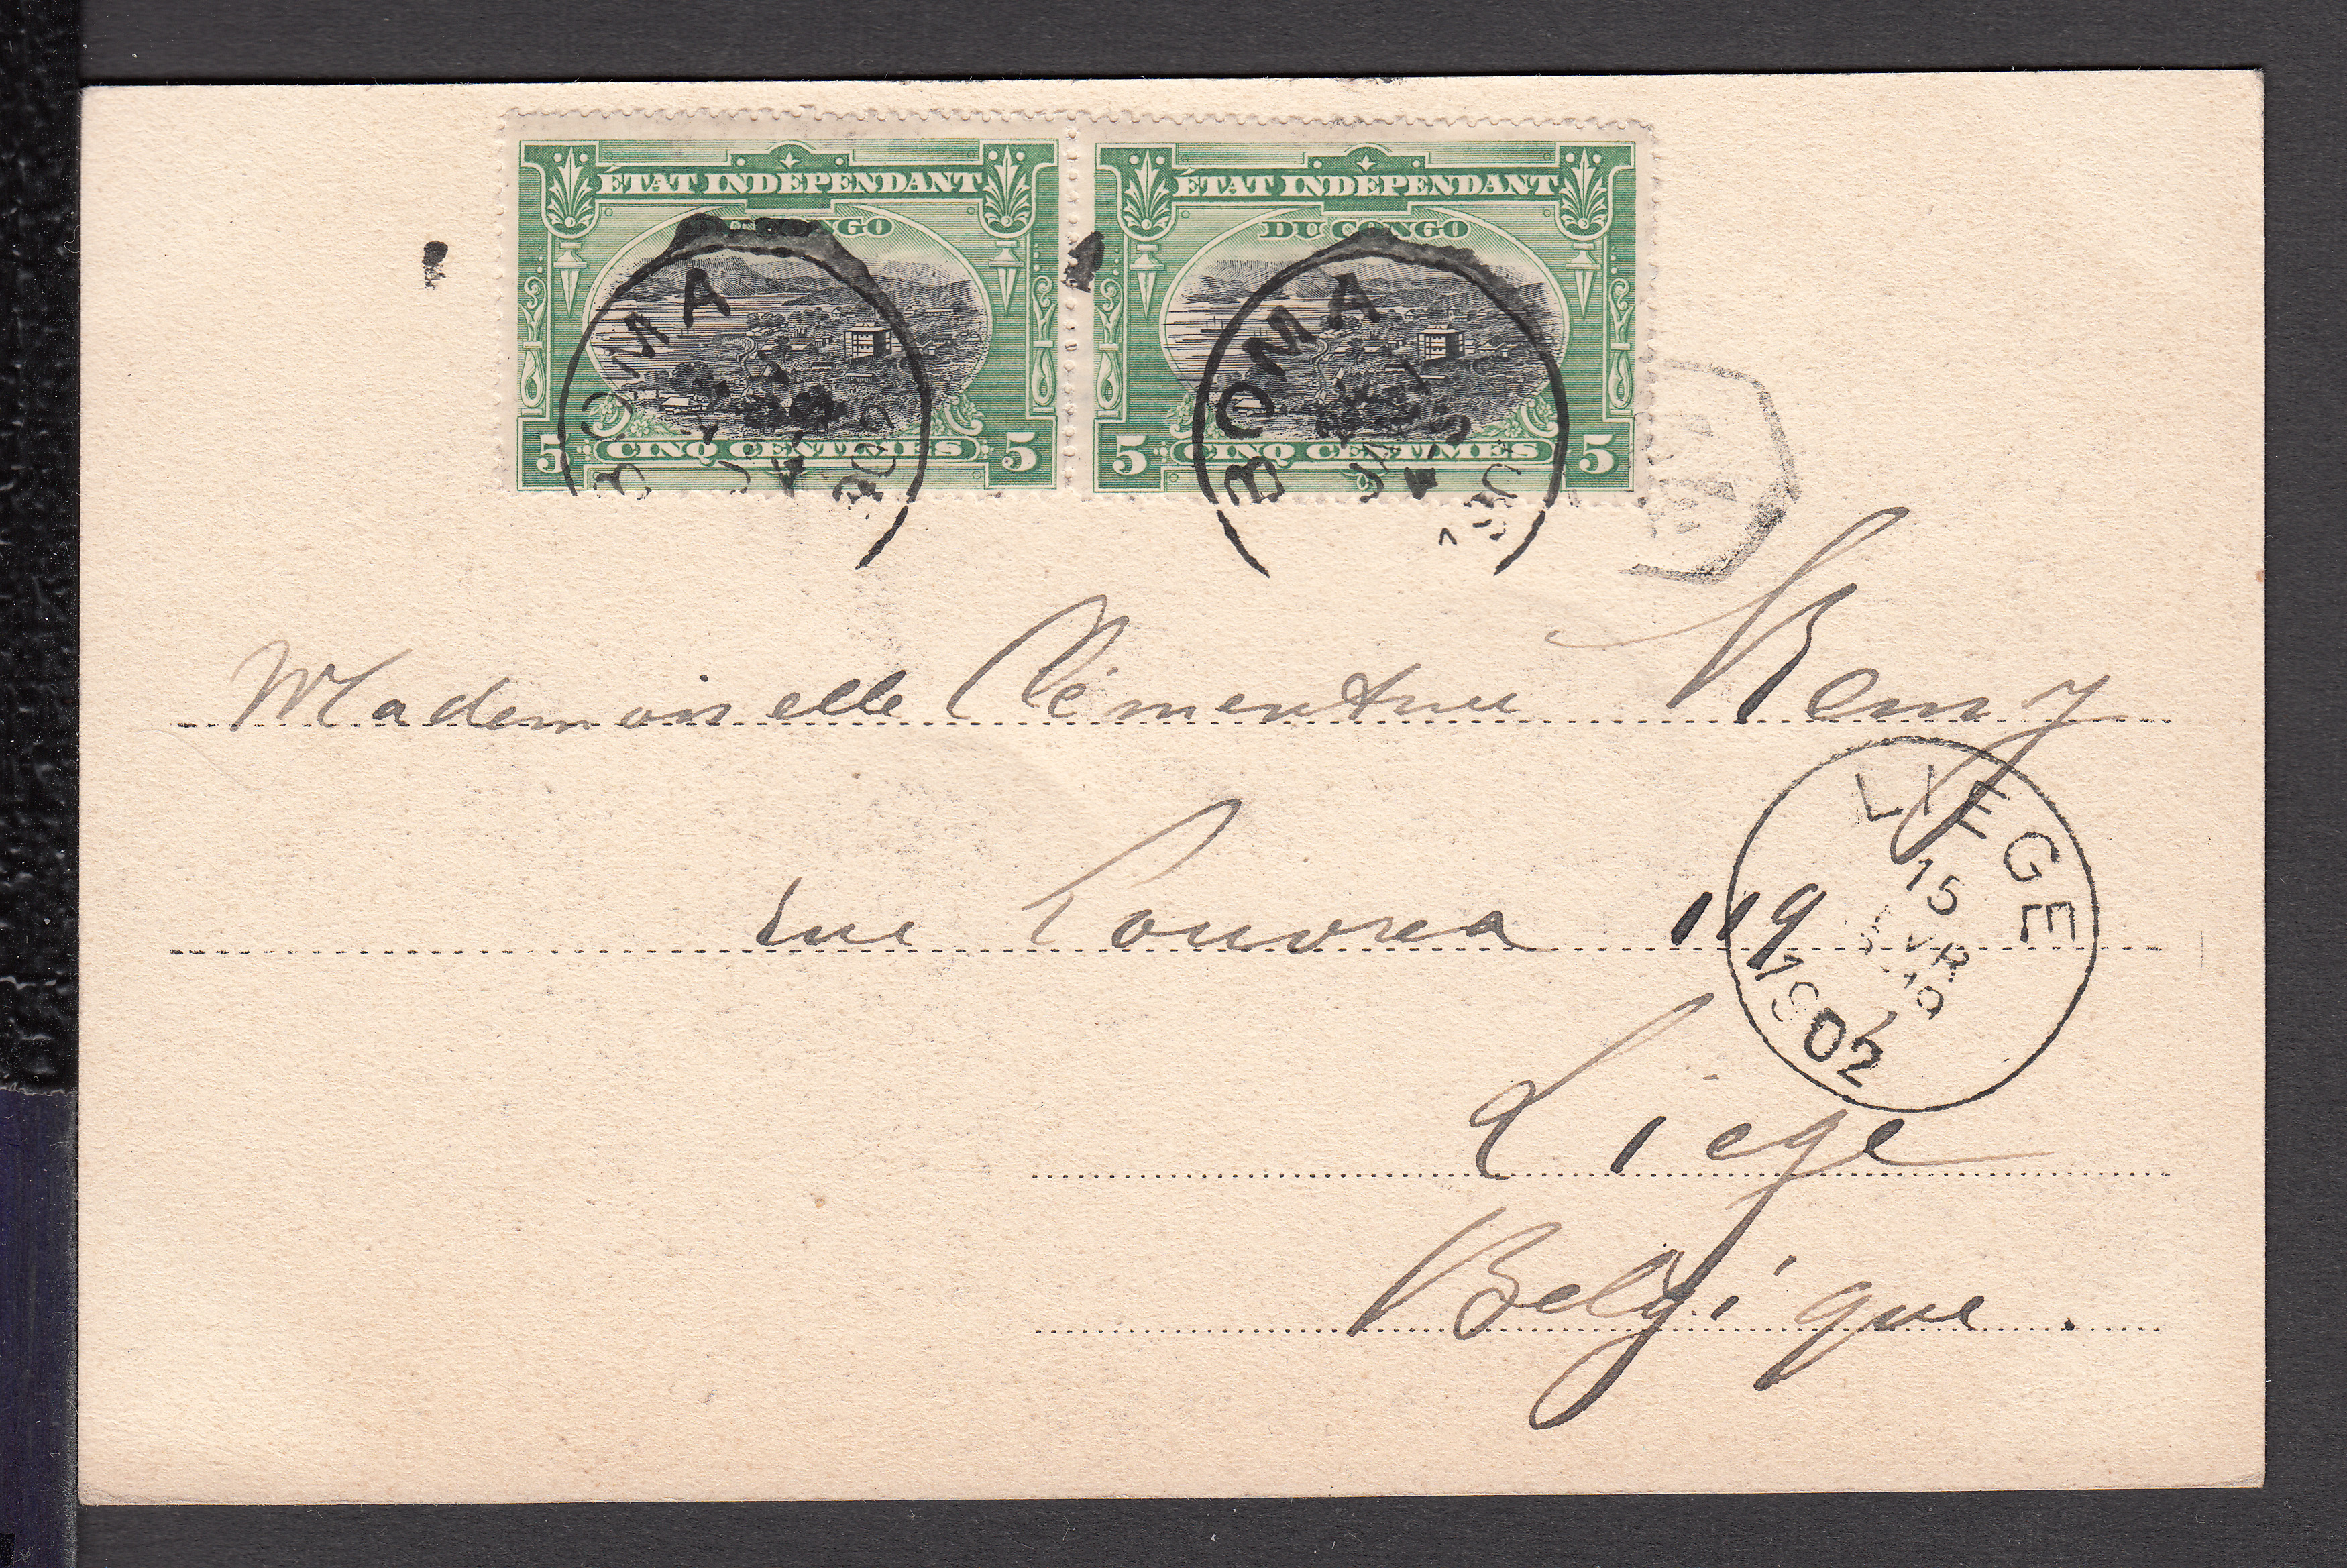 ÉTAT INDÉPENDANT ÉTAT INDÉPENDANT
DU CONGO DU CONGO
5 CINQ CENTIMES 5 5 CINQ CENTIMES 5
BOMA BOMA
Mademoiselle Clémentine Remy
rue Louvrex 119
LIEGE
15
1902
Liège
Belgique.